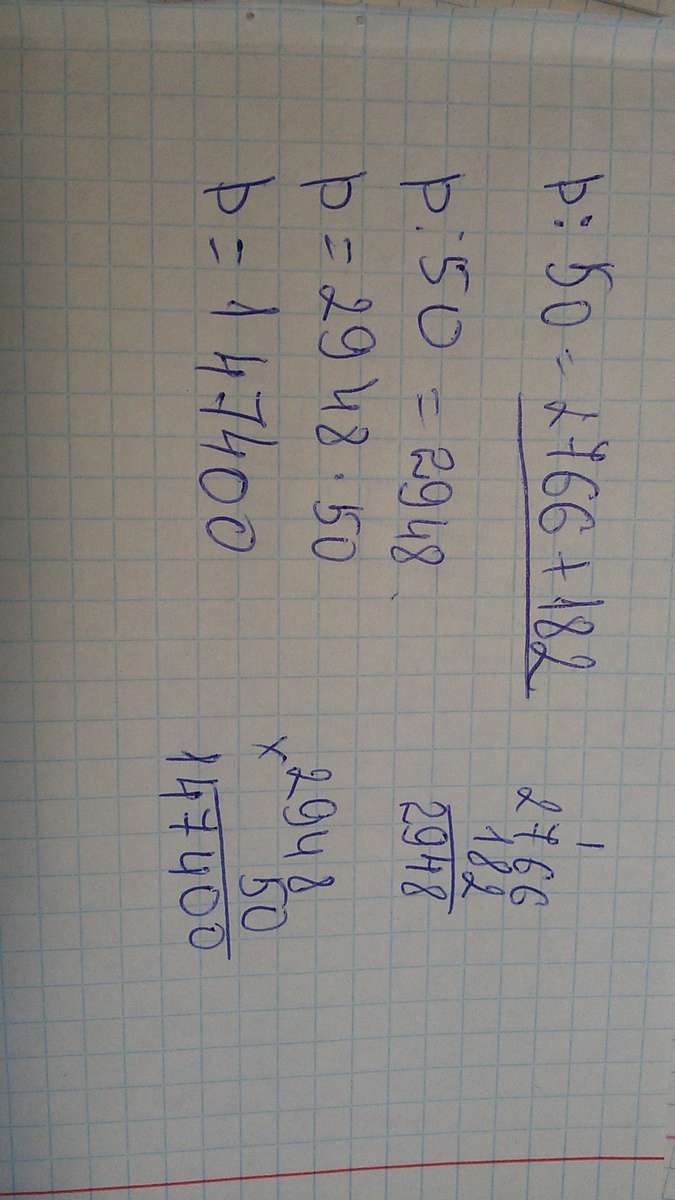 p : 50 = 2766 + 182
p : 50 = 2948
p = 2948 · 50
p = 147400
1
2766
182
2948
× 2948
50
147400